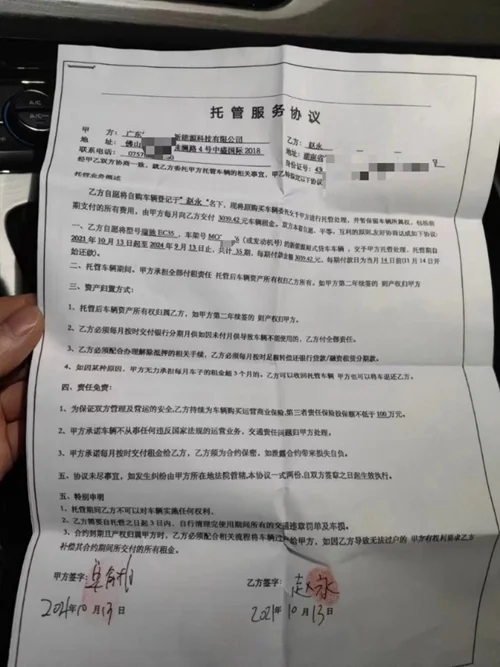 托管服务协议
甲 方：广东 新能源科技有限公司
乙方：赵永
佛山 澜路4号中盛国际2018
湖南省
联系电话：0757
身份证号：43
经甲乙双方协商一致，就乙方委托甲方托管车辆的相关事宜，甲乙 以下协议
托管业务概述
乙方自愿将自购车辆登记于"赵永"名下，现将原购买车辆委托予甲方进行托管处理，并警保留车辆所属权，包括按
期支付的所有费用，由甲方每月向乙方交付 3039.42 元车辆租金。双方本着自愿、平等、互利的原则友好协商达成如下协议：
一、乙方自愿将型号瑞驰EC35、车架号MO （或发动机号）的新能源厢式货车车辆，交予甲方托管处理，托管期自
2021年10月13日起至2024年9月13日止，共计35期，每期付款金额 3039.42 元，每期付款日为当月14日前（11月14日开
始还款）。
二、托管车辆期间，甲方承担全部付租责任 托管后车辆资产所有权归乙方所有。如甲方第二年续签的 则产权归甲方
三、资产归置方式：
1、托管后车辆资产所有权归属乙方，如甲方第二年续签的 则产权归甲方。
2、乙方必须每月按时交付银行分期月供如因未付月供导致车辆不能使用的，乙方付全部责任。
3、乙方必须配合办理解除抵押的相关手续，乙方必须每月按时足额补偿还银行贷款/融资租赁分期款。
4、如因某种原因，甲方无力承担每月车子的租金超3个月的，乙方可以收回托管车辆 甲方也可以将车退还乙方。
四、责任免责：
1、为保证双方管理及营运的安全，乙方持续为车辆购买运营商业保险，第三者责任保险投保额不低于100万元。
2、甲方承诺车辆不从事任何违反国家法规的运营业务，交通责任问题归甲方处理。
3、甲方承诺每月按时交付租金给乙方，乙方须为合约保密，如泄露合约带来损失自负。
五、协议未尽事宜，如发生纠纷由甲方所在地法院管辖，本协议一式两份，自双方签章之日起生效执行。
五、特别申明
1、托管期间乙方不可以对车辆实施任何权利。
2、乙方需要自托管之日起3日内、自行清理完使用期间所有的交通违章罚单及车损。
3、合约到期且产权归属甲方时，乙方必须配合相关流程将车辆过户给甲方，如因乙方导致无法过户的 甲方有权利要求乙方
补偿其合约期间所交付的所有租金。
甲方签字：
乙方签字：赵永
2021年10月13日
2021年10月13日